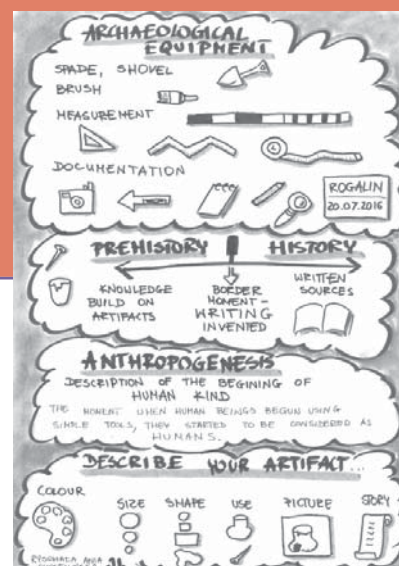 ARCHAEOLOGICAL
EQUIPMENT
SPADE, SHOVEL
BRUSH
MEASUREMENT
DOCUMENTATION
ROGALIN
20.07.2016
PREHISTORY HISTORY
KNOWLEDGE
BUILD ON
ARTIFACTS
BORDER
MOMENT-
WRITING
INVENTED
WRITTEN
SOURCES
ANTHROPOGENESIS
DESCRIPTION OF THE BEGINING OF
HUMAN KIND
THE MOMENT WHEN HUMAN BEINGS BEGUN USING
SIMPLE TOOLS, THEY STARTED TO BE CONSIDERED AS
HUMANS.
DESCRIBE YOUR ARTIFACT...
COLOUR
SIZE SHAPE USE PICTURE STORY